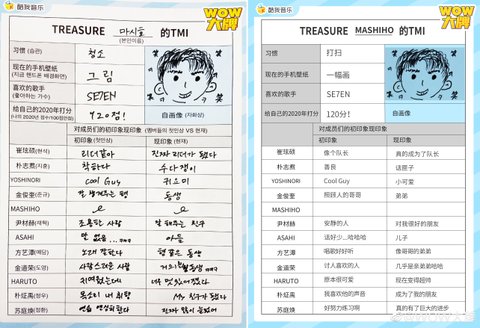 酷我音乐
WOW大牌
TREASURE 마시호 的TMI
(본인이름)
习惯 (습관) 청소
现在的手机壁纸 그림
(지금 핸드폰 배경화면)
喜欢的歌手 SE7EN
(좋아하는 가수)
给自己的2020年打分 120점!
自画像 (자화상)
对成员们的初印象现印象 (멤버들의 첫인상 VS 현재)
初印象(첫인상) 现印象 (현재)
崔玹硕(현석) 리더같아 진짜 리더가 됐다
朴志焄(지훈) 착하다 수다쟁이
YOSHINORI cool Guy 귀요미
金俊奎(준규) 잘 챙겨주는 형 동생
MASHIHO
尹材赫(재혁) 조용한 사람 잘 해주는 친구
ASAHI 말 없음... 아들
方艺潭(예담) 노래 잘한다 형같은 동생
金道荣(도영) 사랑스러운 사람
HARUTO 귀여웠는데 너무 멋있어졌다
朴炡禹(정우) 목소리 내 취향 My 친구가 됐다
苏庭焕(정환) 연습 열심히 한다
酷我音乐
WOW大牌
TREASURE MASHIHO 的TMI
习惯 打扫
现在的手机壁纸 一幅画
喜欢的歌手 SE7EN
给自己的2020年打分 120分!
自画像
对成员们的初印象现印象
初印象 现印象
崔玹硕 像个队长 真的成为了队长
朴志焄 善良 话匣子
YOSHINORI Cool Guy 小可爱
金俊奎 照顾人的哥哥 弟弟
MASHIHO
尹材赫 安静的人 对我很好的朋友
ASAHI 话好少...哈哈哈 儿子
方艺潭 唱歌好好听 像哥哥的弟弟
金道荣 讨人喜欢的人 几乎是亲弟弟哈哈
HARUTO 原本很可爱 现在变得超帅
朴炡禹 我喜欢他的声音 成为了我的朋友
苏庭焕 好努力练习啊 真的有了巨大的进步